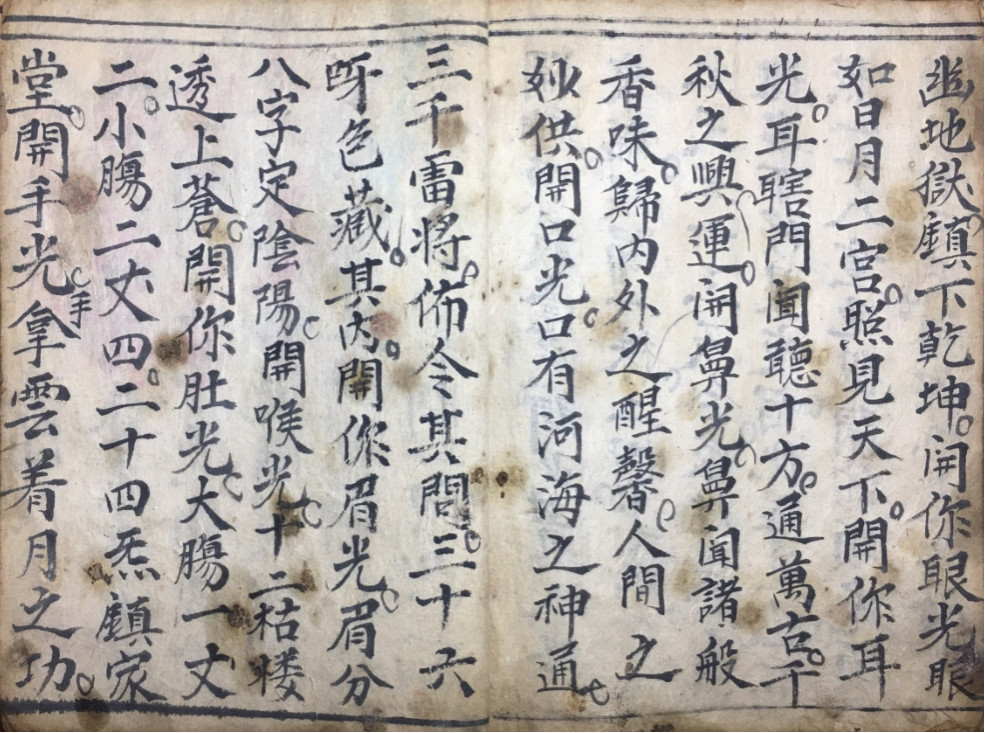 幽地獄鎮下乾坤。開你眼光眼
如日月二宫。照見天下。開你耳
光。耳聴門聞聽十方。通萬古。千
秋之興運。開鼻光。鼻聞諸般
香味。歸内外之醒馨。人間之
妙供。開口光。口有河海之神通。
三千雷將。佈令其間。三十六
呀色藏。其内。開你眉光。眉分
八字定陰陽。開喉光。十二枯楼
透上蒼。開你肚光。大腸一丈
二。小腸二丈四。二十四炁鎮家
堂。開手光。手拿雲着月之功。